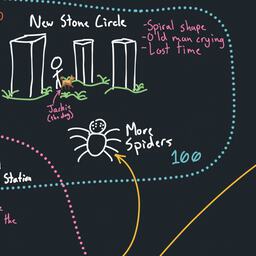 New Stone Circle
-Spiral shape
-Old man crying
-Lost time
Jackie
(the dog)
More
Spiders
100
Station
the